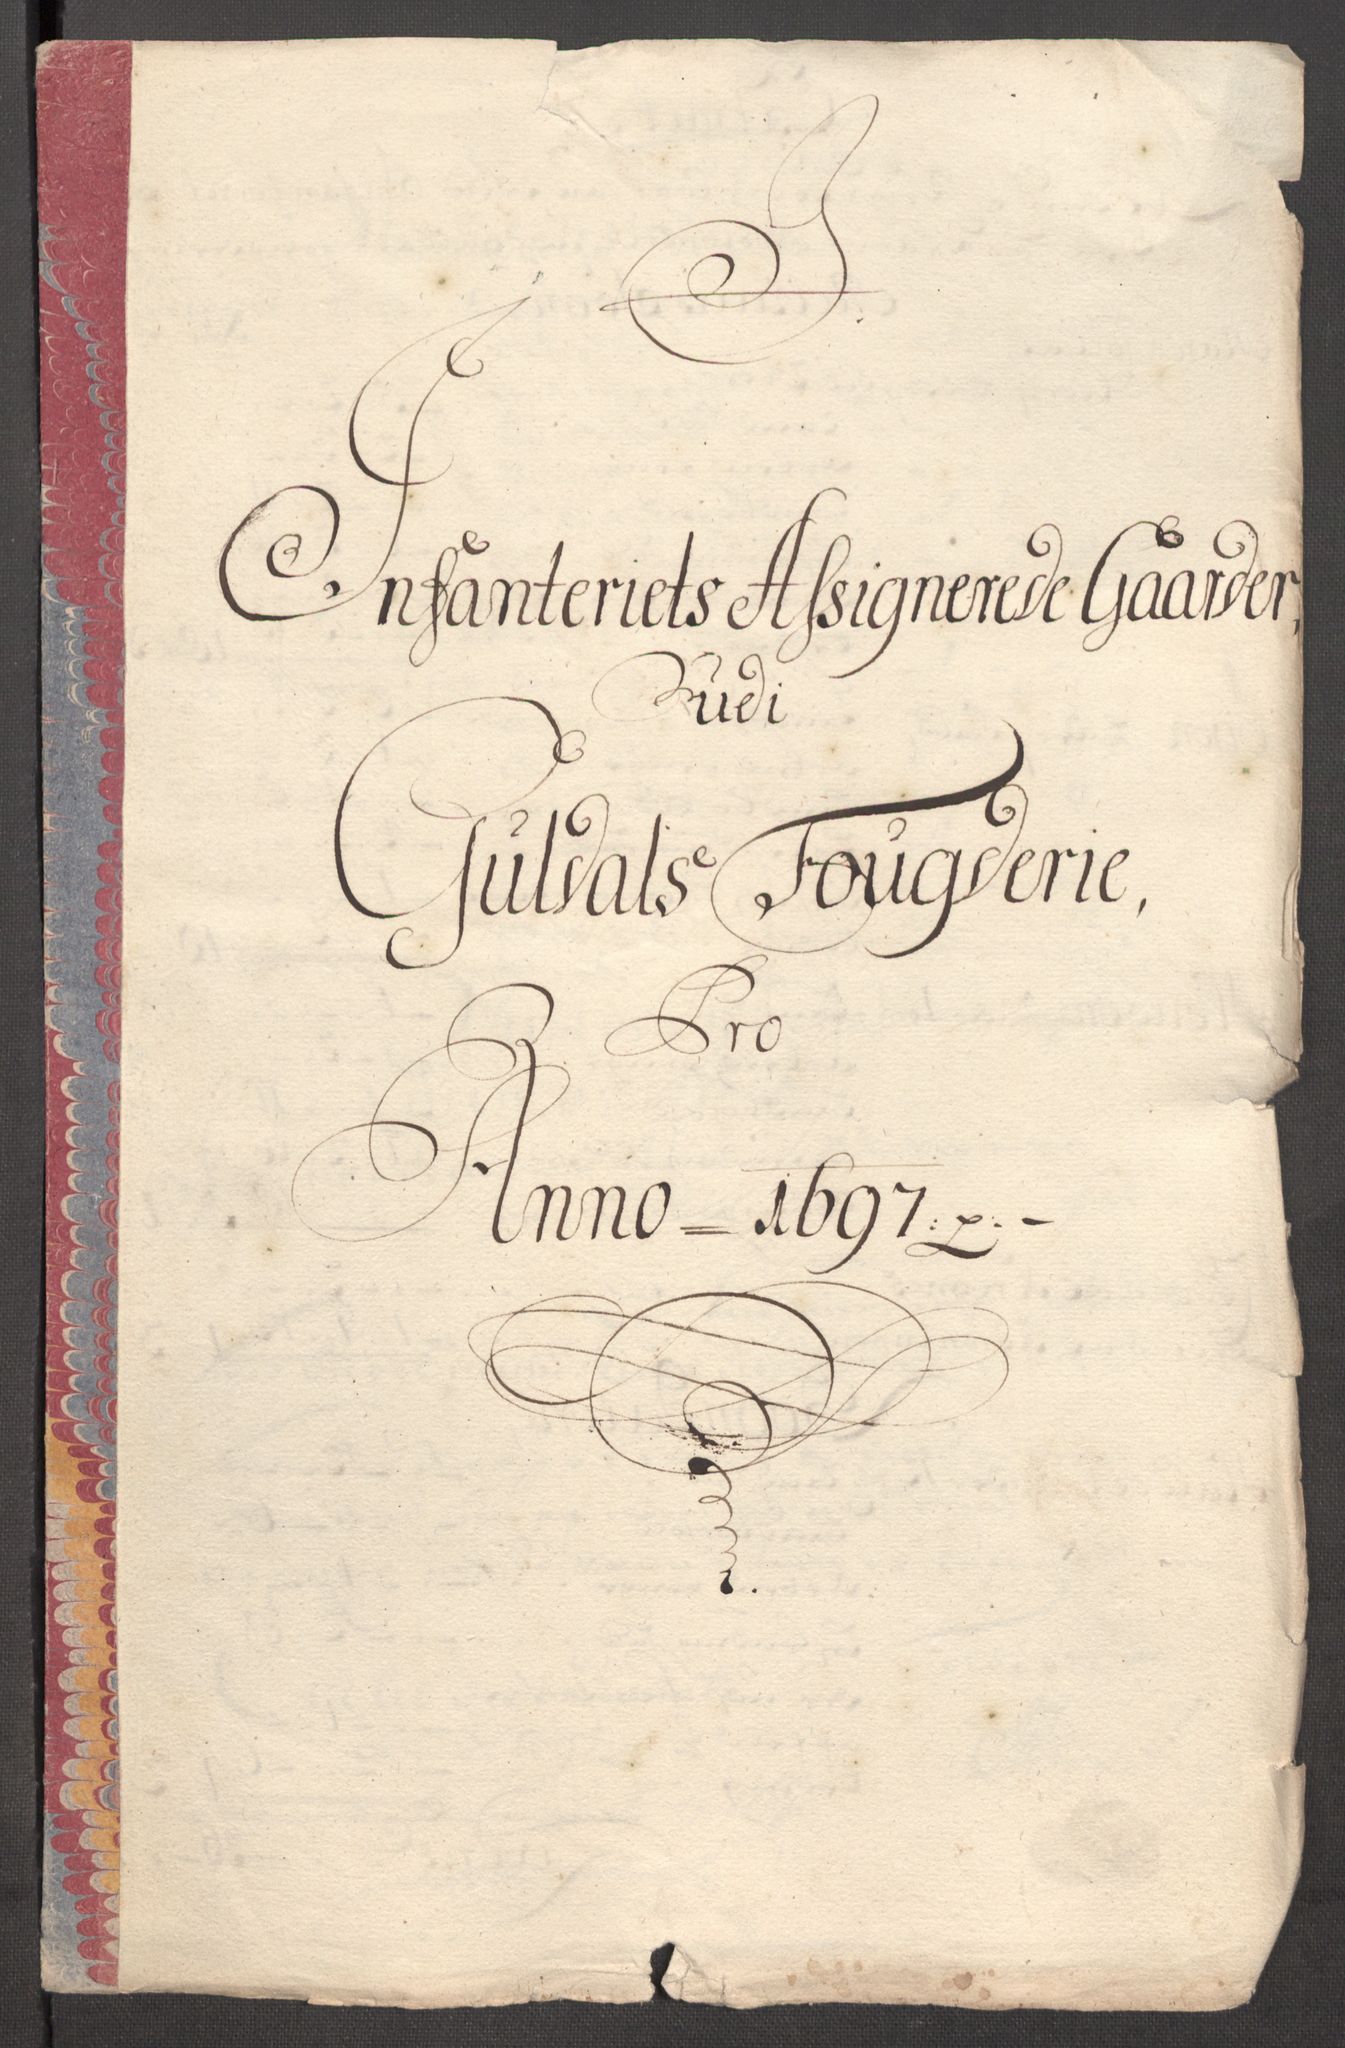 J.
Infanteriets Assignerede Gaarder,
Udi
Guldals Fougderie,
Pro
Anno = 1697 :/: -